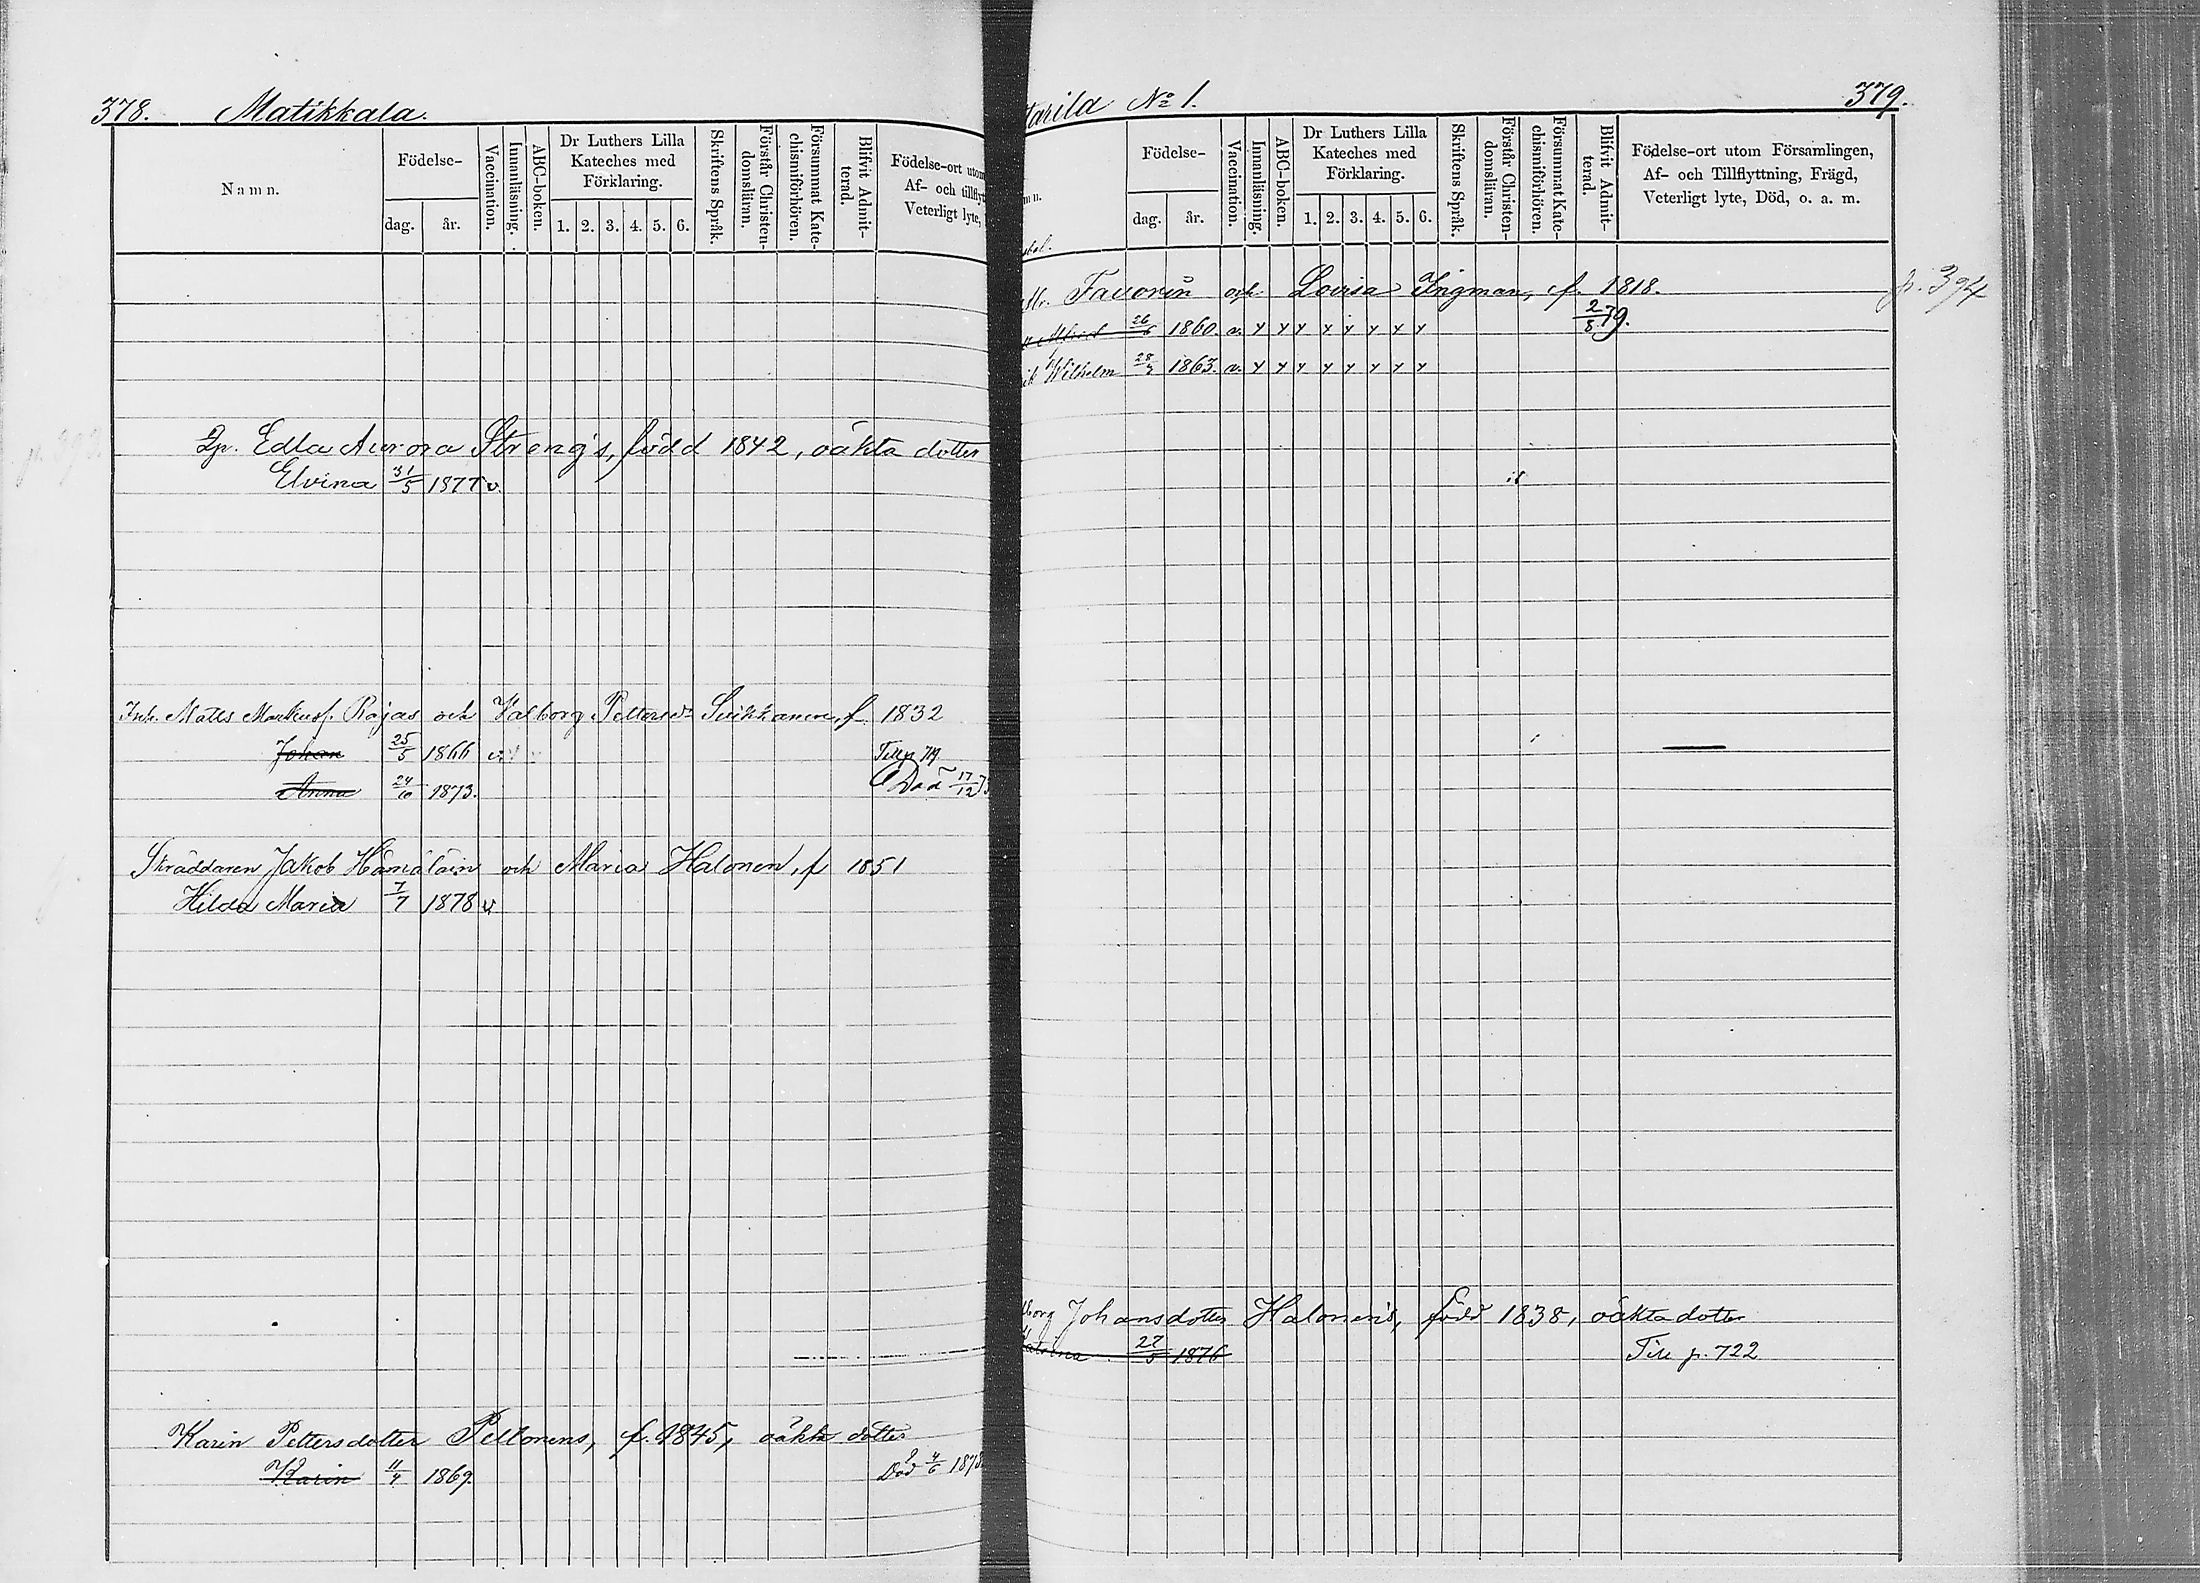 378. Matikkala.
Namn.
Födelse-
dag.
år.
Vaccination.
Innanläsning.
ABC-boken.
Dr Luthers Lilla
Kateches med
Förklaring.
1. 2. 3. 4. 5. 6.
Skriftens Språk.
Förstår Christen-
domsläran.
Försummat Kate-
chismiförhören.
Blifvit Admit-
terad.
Födelse-ort utom
Af- och tillflyt
Veterligt lyte,
Edla Aurora Streng's, född 1842, oäkta dotter
Elvina 31/5 1877 v.
Inh. Matts Markusf. Rajas och Valborg Pettersdr Suikkanen, f. 1832
Johan 25/5 1866 v.
Anna 24/10 1873. Död 17/12
Skräddaren Jakob Hämäläin och Maria Halonen, f 1851
Hilda Maria 7/7 1878 v
Karin Pettersdotter Pellonens, f. 1845, oäkta dotter
Karin 11/4 1869. Död 4/6 1878
arild No 1. 379.
Födelse-
dag.
år.
Vaccination.
Innanläsning.
ABC-boken.
Dr Luthers Lilla
Kateches med
Förklaring.
1. 2. 3. 4. 5. 6.
Skriftens Språk.
Förstår Christen-
domsläran.
Försummat Kate-
chismiförhören.
Blifvit Admit-
terad.
Födelse-ort utom Församlingen,
Af- och Tillflyttning, Frägd,
Veterligt lyte, Död, o. a. m.
Favorin och Lovisa Ingman, f. 1818. p. 394
26/6 1860. v. y y y y y y y y 2/8 79.
Wilhelm 28/7 1863. v. y y y y y y y y
borg Johansdotter Halonen's, född 1838, oäkta dotter
atrina 27/5 1876 Till p. 722